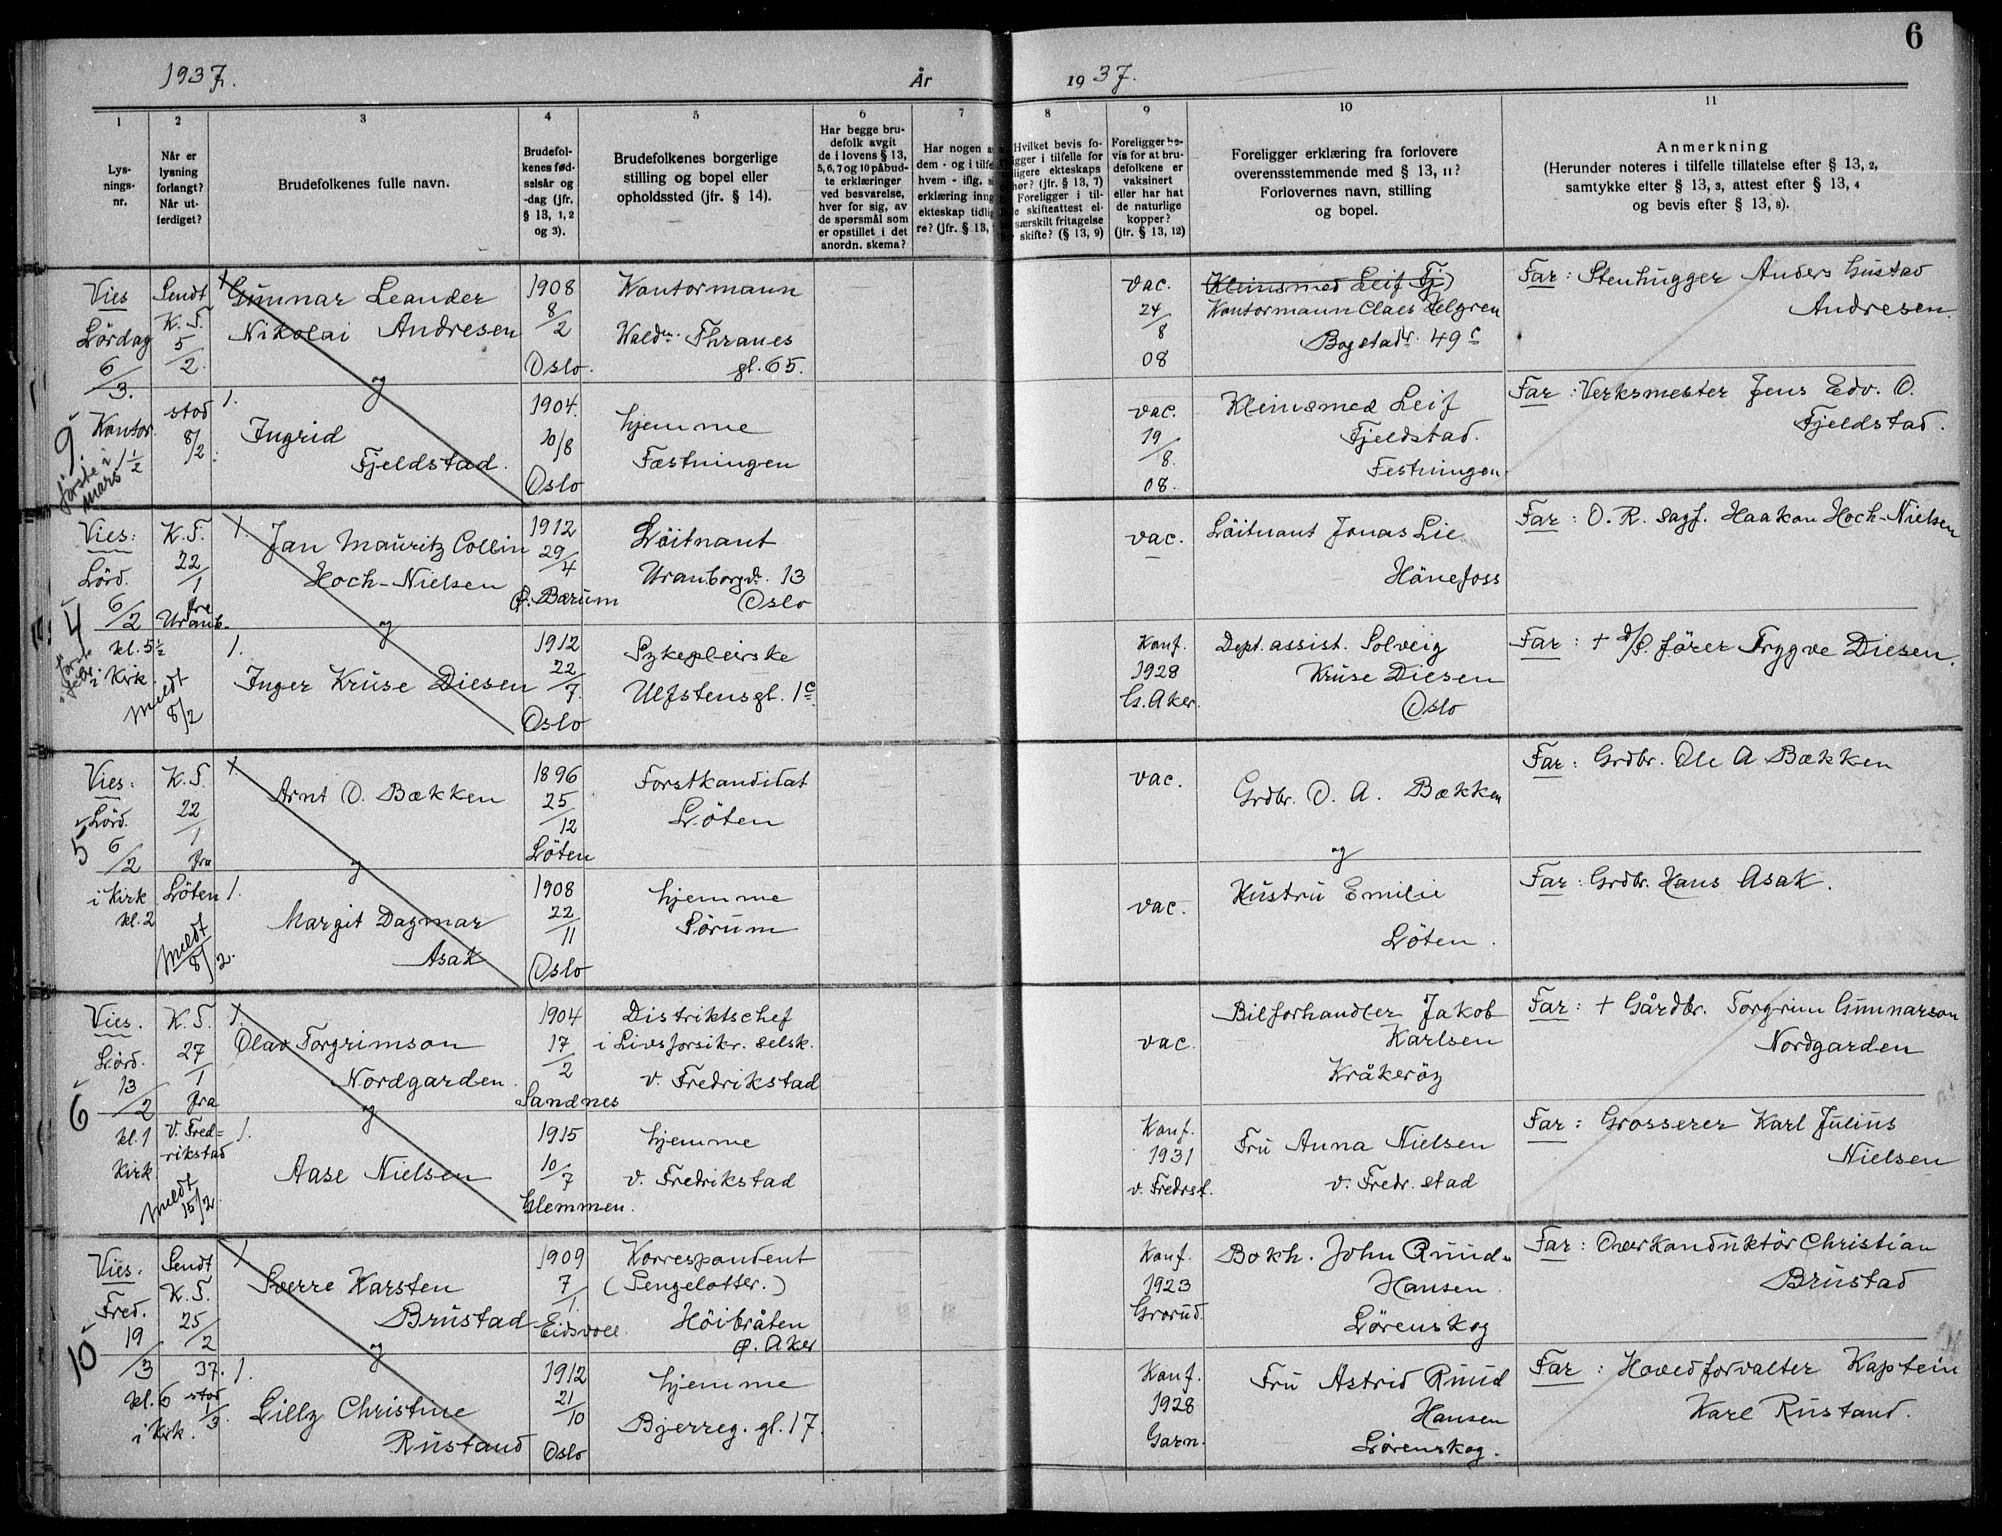 1937. År 1937.
6
1 2 3 4 5 6 7 8 9 10 11
Lys-
nings-
nr.
Når er
lysning
forlangt?
Når ut-
ferdiget?
Brudefolkenes fulle navn.
Brudefol-
kenes fød-
selsår og
-dag (jfr.
§ 13, 1, 2
og 3).
Brudefolkenes borgerlige
stilling og bopel eller
opholdssted (jfr. § 14).
Har begge bru-
defolk avgit
de i lovens § 13,
5, 6, 7 og 10 påbud-
te erklæringer
ved besvarelse,
hver for sig, av
de spørsmål som
er opstillet i det
anordn. skema?
Har nogen a
dem - og i tilfe
hvem - iflg. s
erklæring inng
ekteskap tidlig
re? (jfr. § 13,
Hvilket bevis fo-
igger i tilfelle for
ligere ekteskaps
hør? (jfr. § 13, 7)
Foreligger i til-
le skifteattest el-
særskilt fritagelse
skifte? (§ 13, 9)
Foreligger be-
vis for at bru-
defolkene er
vaksinert
eller har hat
de naturlige
kopper?
(jfr. § 13, 12)
Foreligger erklæring fra forlovere
overensstemmende med § 13, 11?
Forlovernes navn, stilling
og bopel.
Anmerkning
(Herunder noteres i tilfelle tillatelse efter § 13, 2,
samtykke efter § 13, 3, attest efter § 13, 4
og bevis efter § 13, 8).
9
første i
mars
Vies
Lördag
6/3.
Kontor.
1 1/2
Sendt
K.T.
5/2.
stod
8/2
Gunnar Leander
Nikolai Andresen
og
1.
Ingrid
Fjeldstad.
1908
8/2
Oslo.
1904.
20/8
Oslo
Kontormann
Waldm. Thranes
gt. 65.
hjemme
Fæstningen
vac.
24/8
08
vac.
19/8.
08.
Kleinsmed Leif Fj
Kontormann Claes Helgren
Bogstadv. 49 c
Kleinsmed Leif
Fjeldstad.
Festningen
Far: Stenhugger Anders Gustav
Andresen.
Far: Verksmester Jens Edv. O.
Fjeldstad.
4
første
i febr.
Vies:
Lörd.
6/2
kl. 5 1/2
i Kirk.
K.T.
22/1
fra
Uranb.
meldt
8/2
1. Jan Mauritz Collin
Hoch-Nielsen
og
1.
Inger Kruse Diesen
1912
29/4
Ø. Bærum
1912
22/7.
Oslo
Löitnant
Uranborgv. 13
Oslo
Sykepleierske
Ulfstensgt. 1 c.
vac.
Konf.
1928
G. Aker.
Löitnant Jonas Lie
Hönefoss
Dept. assist. Solveig
Kruse Diesen
Oslo
Far: O. R. sagf. Haakon Hoch-Nielsen
Far: + d/s. förer Trygve Diesen.
5
Vies:
Lörd.
6/2
i Kirk
kl. 2
K.T.
22/1
fra
Löten
meldt
8/2.
Arnt O. Bækken
og
1.
Margit Dagmar
Asak
1896
25/12
Löten
1908
22/11
Oslo
Forstkandidat
Löten
hjemme
Sørum
vac.
vac.
Grdbr. O. A. Bækken
og
Hustru Emilie
Löten.
Far: Grdbr. Ole A Bækken
Far: Grdbr. Hans Asak.
6
Vies.
Lörd.
13/2
kl. 1
Kirk
K.T.
27/1
fra
V. Fred=
rikstad
meldt
15/2.
1.
Olav Torgrimson
Nordgarden.
og
1.
Aase Nielsen
1904
17/2
Sandnes
1915
10/7
Glemmen.
Distriktschef
i Livsforsikr. selsk.
v. Fredrikstad
hjemme
v. Fredrikstad
vac.
Konf.
1931
v. Fredrst.
Bilforhandler Jakob
Karlsen
Kråkeröy
Fru Anna Nielsen
v. Fredr. stad
Far: + Gårdbr. Torgrim Gunnarson
Nordgarden
Far: Grosserer Karl Julius
Nielsen
10
Vies:
Fred.
19/3
kl. 6
i Kirk.
Sendt
K.T.
25/2
37.
stod
1/3.
1.
Sverre Karsten
Brustad
og
1.
Lilly Christine
Rustand
1909
7/1.
Eidsvoll.
1912
21/10
Oslo
Korrespondent
(Pengelotter.)
Höibråten
Ø. Aker
hjemme
Bjerreg. gt. 17.
Konf.
1923
Grorud.
Konf.
1928
Garn.
Bokh. John Ruud-
Hansen.
Lørenskog
Fru Astrid Ruud
Hansen
Lørenskog.
Far: Overkonduktör Christian
Brustad
Far: Hovedforvalter Kaptein
Karl Rustand.